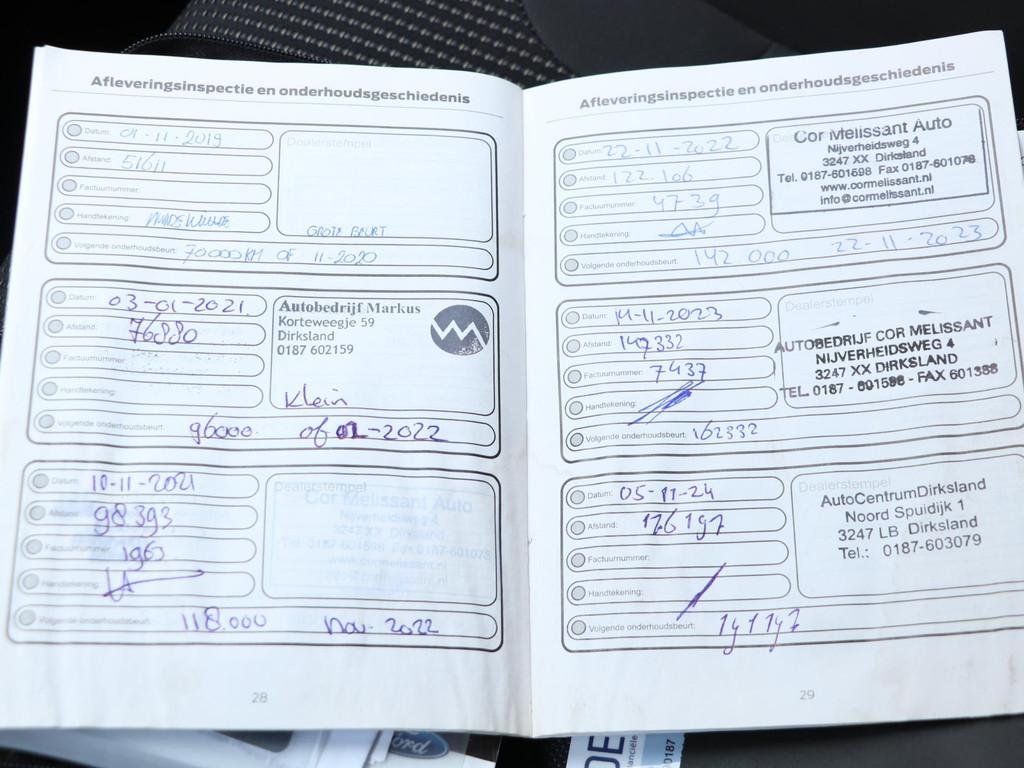 Afleveringsinspectie en onderhoudsgeschiedenis
Datum: 01-11-2019
Afstand: 51611
Factuurnummer:
Handtekening:
Dealerstempel
GROTE BEURT
Volgende onderhoudsbeurt: 70000KM OF 11-2020
Datum: 03-01-2021
Afstand: 76880
Factuurnummer:
Handtekening:
Autobedrijf Markus
Korteweegje 59
Dirksland
0187 602159
Klein
Volgende onderhoudsbeurt: 96000. of 01-2022
Datum: 10-11-2021
Afstand: 98393
Factuurnummer: 1963
Handtekening:
Dealerstempel
Cor Melissant Auto
Nijverheidsweg 4
3247 XX Dirksland
Tel. 0187-601598 Fax 0187-601073
www.cormelissant.nl
info@cormelissant.nl
Volgende onderhoudsbeurt: 118.000 Nov- 2022
28
Afleveringsinspectie en onderhoudsgeschiedenis
Datum: 22-11-2022
Afstand: 122.106
Factuurnummer: 4739
Handtekening:
Cor Melissant Auto
Nijverheidsweg 4
3247 XX Dirksland
Tel. 0187-601598 Fax 0187-601078
www.cormelissant.nl
info@cormelissant.nl
Volgende onderhoudsbeurt: 142 000 22-11-2023
Datum: 14-11-2023
Afstand: 147332
Factuurnummer: 7437
Handtekening:
Dealerstempel
AUTOBEDRIJF COR MELISSANT
NIJVERHEIDSWEG 4
3247 XX DIRKSLAND
TEL. 0187 - 601598 - FAX 601388
Volgende onderhoudsbeurt: 162332
Datum: 05-11-24
Afstand: 176197
Factuurnummer:
Handtekening:
Dealerstempel
AutoCentrumDirksland
Noord Spuidijk 1
3247 LB Dirksland
Tel.: 0187-603079
Volgende onderhoudsbeurt: 191197
29
Ford
0187